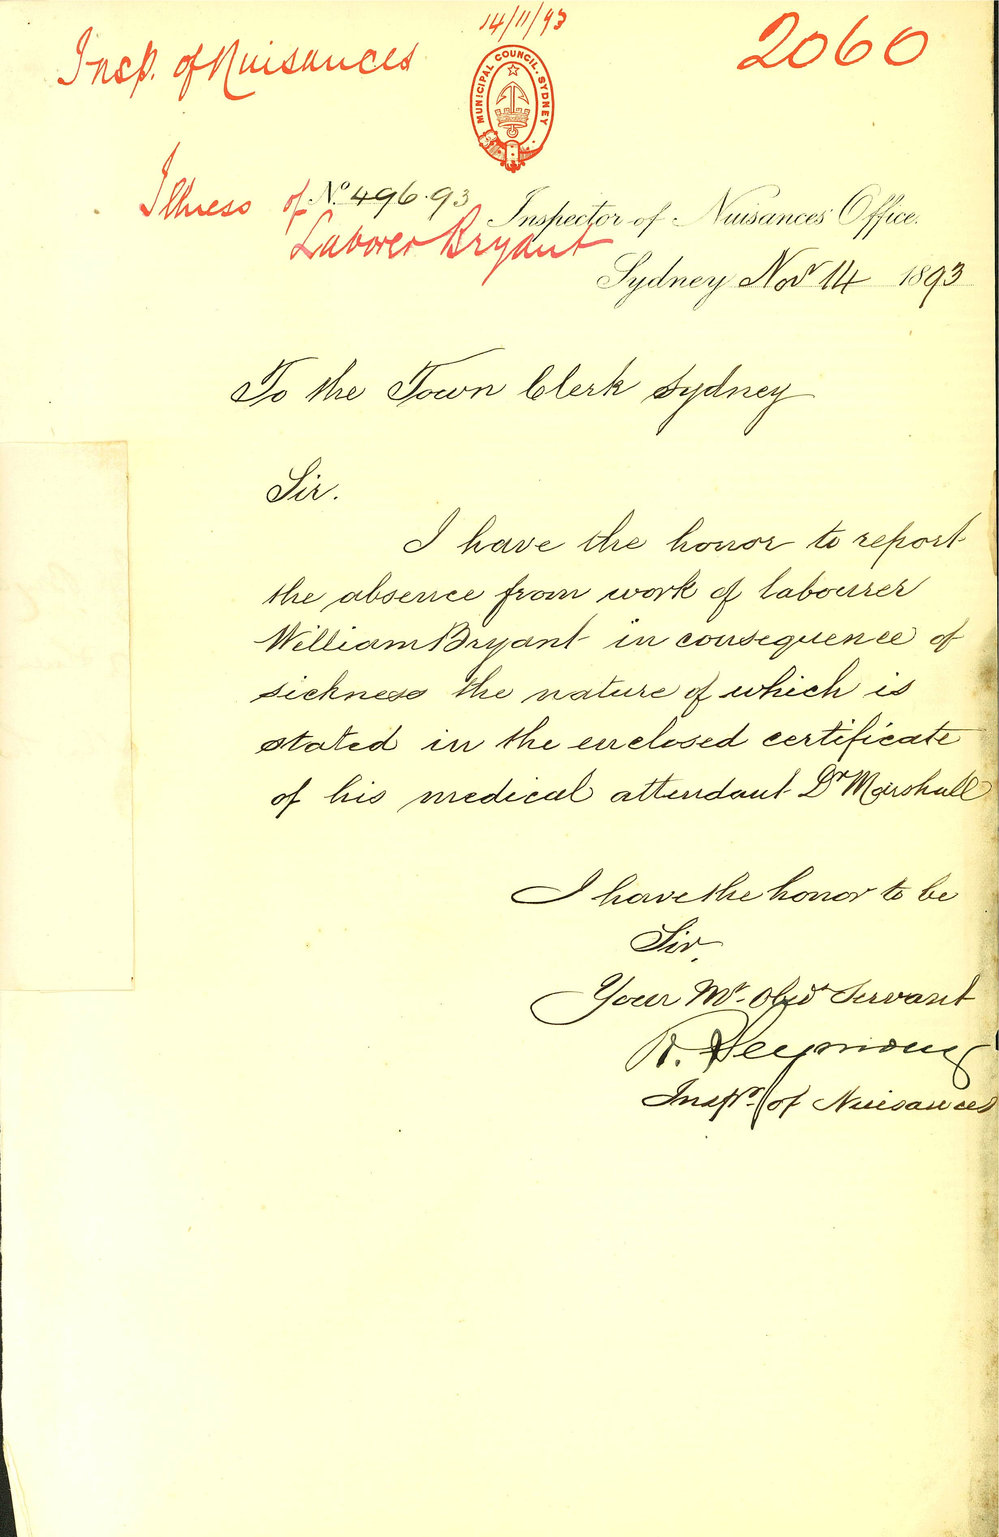 14/11/93
Insp. of Nuisances
2060
MUNICIPAL COUNCIL. SYDNEY
Illness of
No. 496.93
Laborer Bryant
Inspector of Nuisances' Office.
Sydney Novr 14 1893
To the Town Clerk Sydney
Sir.
I have the honor to report
the absence from work of labourer
William Bryant in consequence of
sickness the nature of which is
stated in the enclosed certificate
of his medical attendant Dr Marshall
I have the honor to be
Sir.
Your Mt. Obdt Servant
R. Seymour
Inspr. of Nuisances